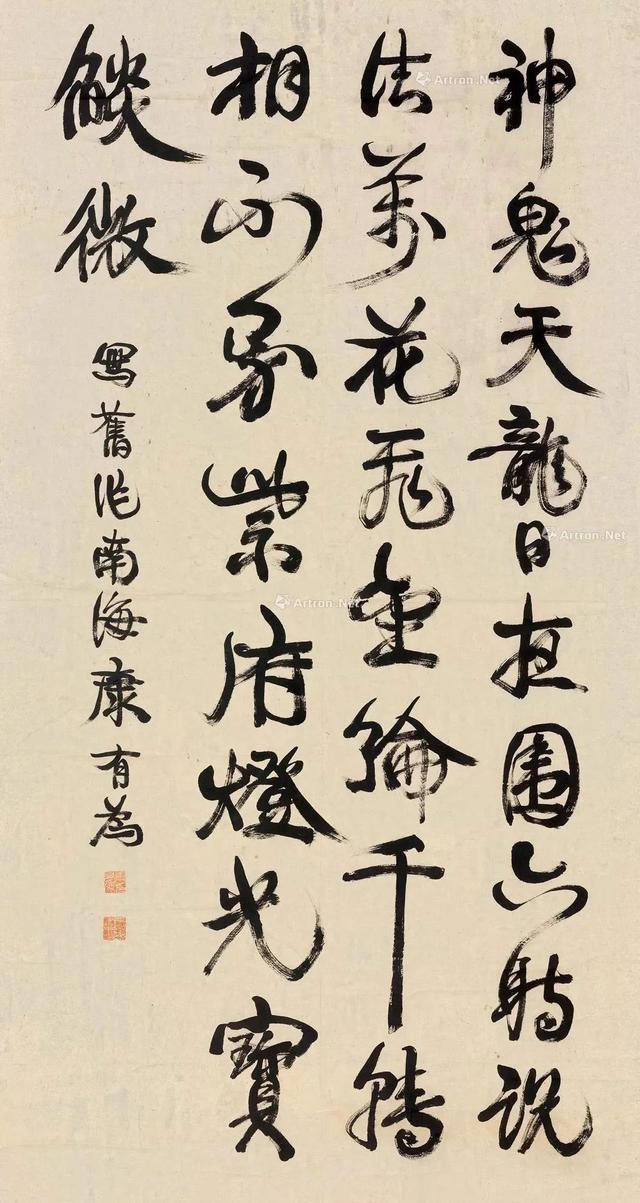 神鬼天龍日夜圍六時說
法萬花飛金輪千轉
相紫府燈光寶
燄微
寫舊作南海康有為
Artron.Net
Artron.Net
Artron.Net